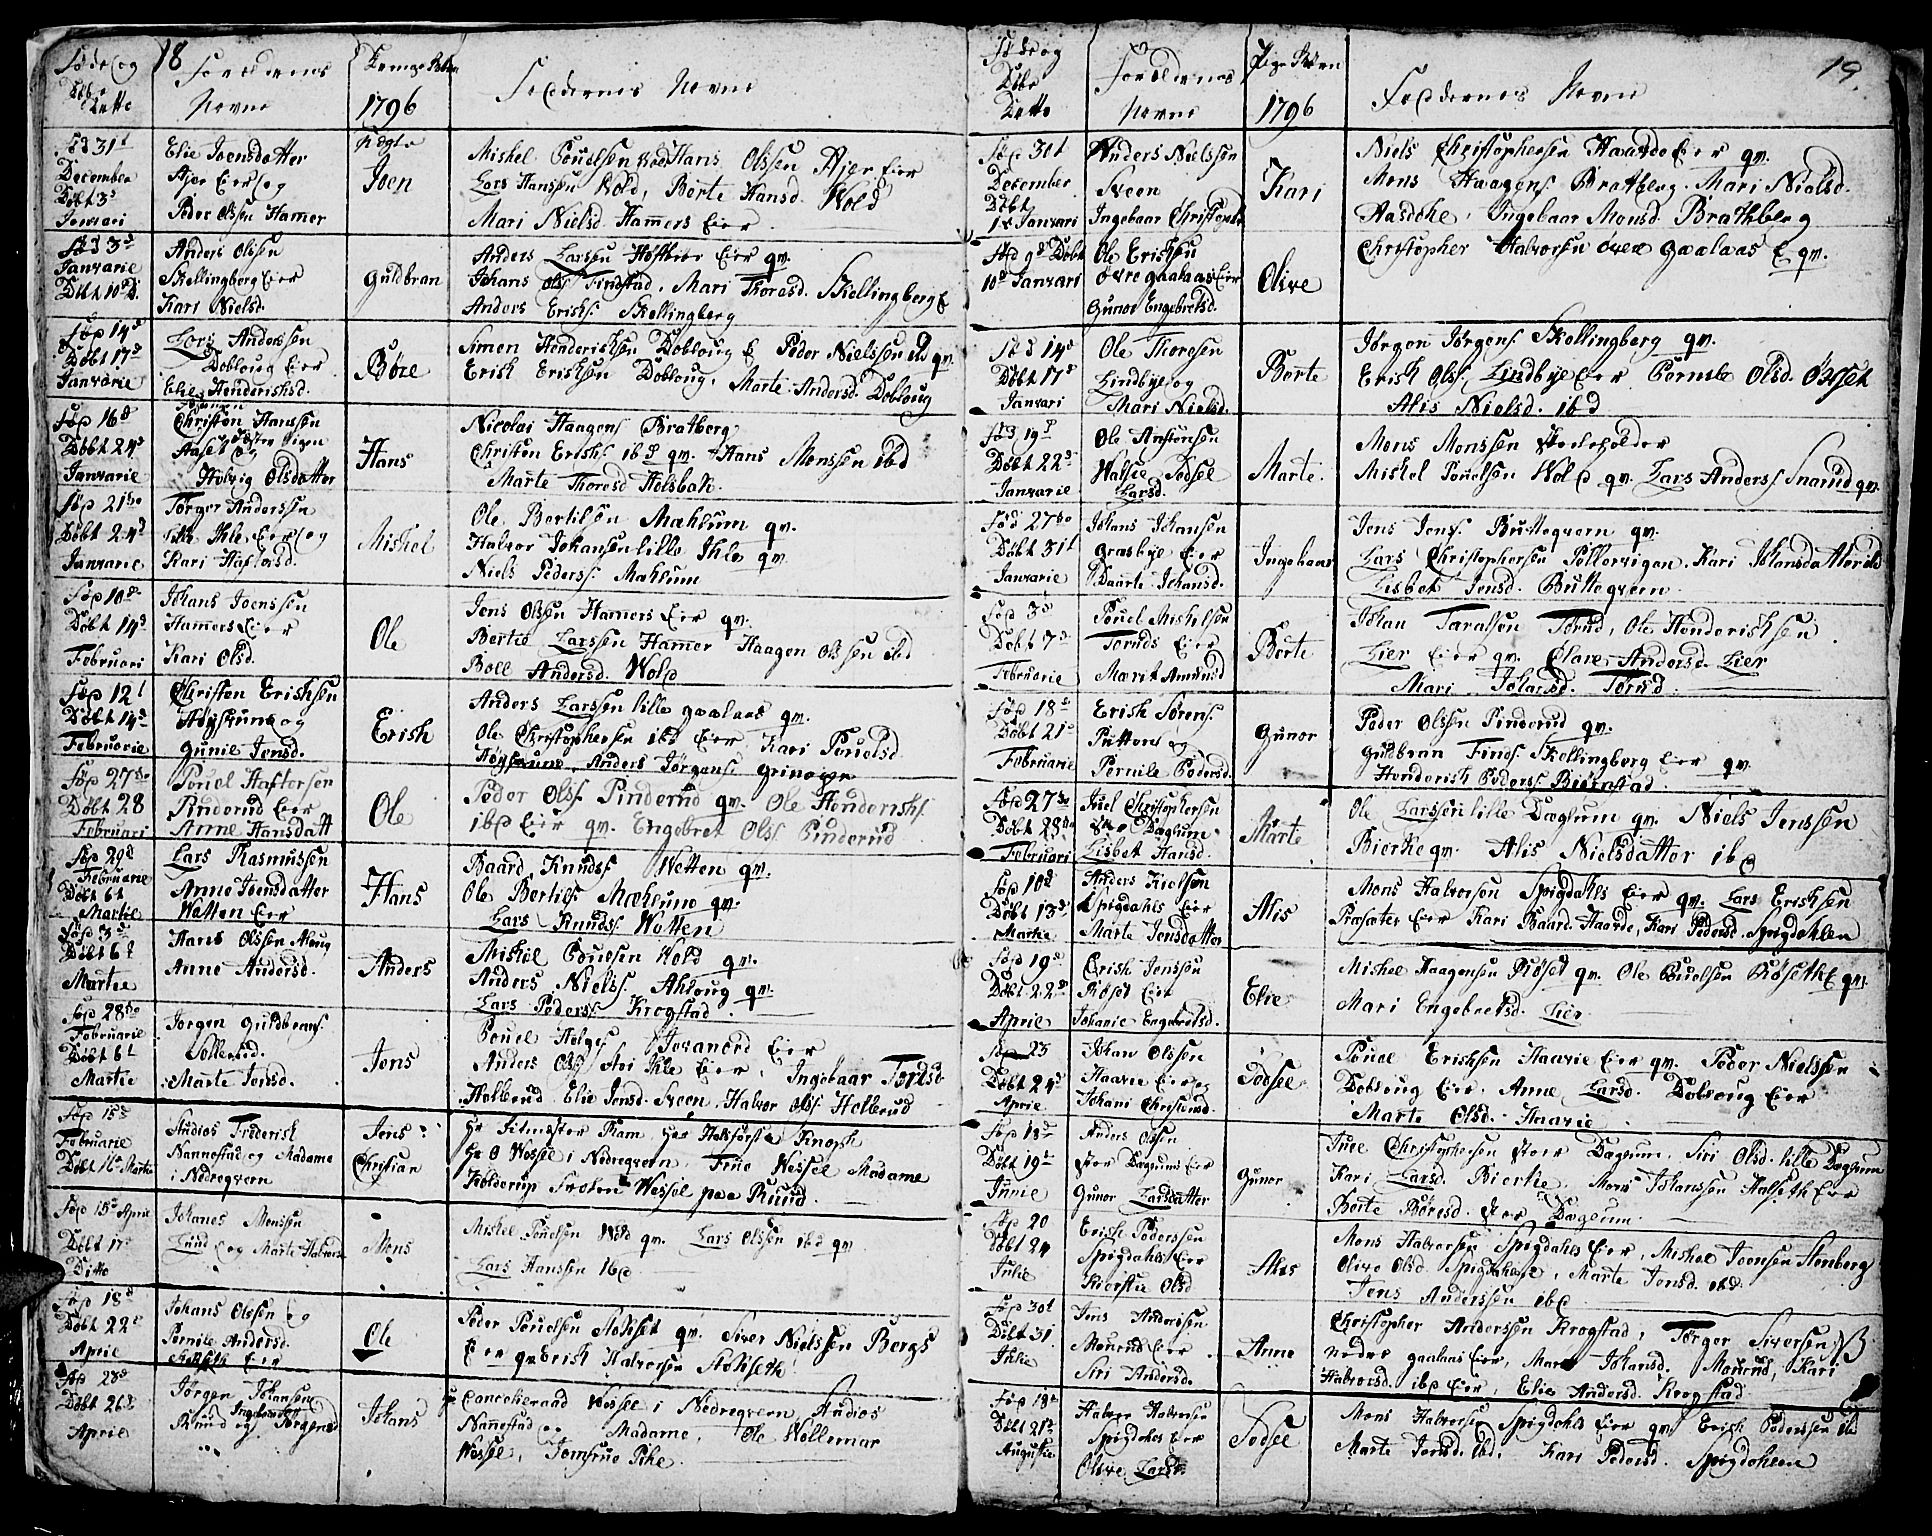 18
Føde og
Døbe
Datto
Forældrenes
Navne
Drenge Børn
1796
Faddernes Navne
Fød 31t
December
Døbt 3d
Januari
Elie Joensdatter
Ajer Eier og
Peder Olsen Hamer
Joen
Mishel Pouelsen Wold Hans Olssen Ajer Eier
Lars Hanssen Wold, Børte Hansd. Wold
Mari Nielsd. Hamers Eier
Fød 3d
Januarie
Døbt 10d
Anders Olssen
Skellingberg Eier
Kari Nielsd.
Guldbran
Anders Larssen Eier qv.
Johans Ols. Findstad, Mari Thoresd. Skellingberg E
Anders Erichs. Skellingberg
Fød 14d
Døbt 17d
Januarie
Lars Anderssen
Dobloug Eier
Elie Henderichsd.
Børe
Simen Henderichsen Dobloug E Peder Nielssen ibd qv
Erich Erichsen Dobloug, Marte Andersd. Dobloug
Fød 16d
Døbt 24d
Januarie
Christen Hanssen
Helvig Olsdatter
Hans
Nicolai Haagens. Bratberg
Christen Erichs. ibd qv. Hans Monssen ibd
Marte Thoresd Holsbak.
Fød 21de
Døbt 24d
Januarie
Tørger Anderssen
Ihle Eier og
Kari Haftorsd.
Mishel
Ole Bertilsen Mæhlum qv.
Halvor Johansen lille Ihle qv.
Niels Peders. Mahlum
Fød 10de
Døbt 14d
Februari
Johans Joenssen
Hamers Eier
Kari Olsd.
Ole
Jens Olssen Hamers Eier qv.
Bertil Larssen Hamer Haagen Olssen ibd
Boel Andersd. Wold
Fød 12t
Døbt 14d
Februarie
Christen Erichsen
Høysruns og
Gunie Jensd.
Erich
Anders Larssen lille Gaalaas qv.
Ole Christophersen ibd Eier, Kari Pouelsd
Anders Jørgens.
Fød 27de
Døbt 28
Februari
Pouel Haftorsen
Pinderud Eier
Anne Hansdatt
Ole
Peder Ols. Pinderud qv. Ole Henderichs.
ibd Eier qv. Engebret Ols. Pinderud
Fød 29d
Februarie
Døbt 6t
Martie
Lars Rasmussen
Anne Joensdatter
Wetten Eier
Hans
Baard Knuds. Wetten qv.
Ole Bertils. Mæhlum qv.
Lars Knuds. Wetten
Fød 3d
Døbt 6t
Martie
Hans Olssen Aloug
Anne Andersd.
Anders
Mishel Pouelsen Wold qv.
Anders Niels. Ahloug qv.
Lars Peders. Krogstad.
Fød 28de
Februarie
Døbt 6t
Martie
Jørgen Guldbrans.
Sollerud.
Marte Jensd.
Jens
Pouel Helges. Eier
Anders Ols. Ihle Eier, Ingebaar
Holbrud Elie Jensd. Sveen, Halvor Ols. Holbrud
Fød 15d
Februarie
Døbt 16de Martie
Studios Frederich
Nannestad og Madame
i Nedregvern
Jens
Christian
Hr Ritmester Ram, Hr Knoph
Hr O Wessel i Nedregvern, Frue Wessel Madame
Kolderup Frøken Wessel paa Ruud.
Fød 15d April
Døbt 17d
Ditto
Johanes Monssen
Lund og Marte Halvors.
Mons
Mishel Pouelsen Wold qv. Lars Olssen ibd qv
Lars Hanssen ibd
Fød 18d
Døbt 22d
Aprie
Johans Olssen og
Pernile Andersd.
Eier
Ole
Peder Pouelsen Stokset qv. Siver Nielssen Bergs
Eier qv Erich Halvorsen Stokseth
Fød 23d
Døbt 26d
April
Jørgen Johansen
Ruud og Jørgensd
Johans
Wessel i Nedregvern Studios
Nannestad og Madame, Ole Wollemar
Wessel, Jomfrue Pihe
19.
Føde og
Døbe
Datto
Forældrenes
Navne
Pige Børn
1796
Faddernes Navne
Fød 30t
December
Døbt
1te Januari
Anders Nielssen
Sveen
Ingebaar Christophs.
Kari
Niels Christophersen Haarde Eier qv.
Mons Haagens. Bratberg. Mari Nielsd.
Ingebaar Monsd. Brathberg
Fød 9d Døbt
10d Januari
Ole Erichsen
Øvre Gaalaas Eier
Gunor Engebretsd.
Olive
Christopher Halvorsen øvre Gaalaas E qv.
Fød 14d
Døbt 17d
Januari
Ole Thoresen
Lindbye og
Mari Nielsd.
Børte
Jørgen Jørgens. Skellingberg qv.
Erich Ols. Lindbye Eier Pernele Olsd. Øvset
Alis Nielsd. ibd
Fød 19d
Døbt 22d
Januarie
Ole Anstensen
Sødsel
Larsd.
Marte.
Mons Monssen Skoleholder
Mishel Pouelsen Wold qv. Lars Anders. Snarud qv.
Fød 27de
Døbt 31t
Januarie
Johans Johansen
Græsbye Eier
Johansd.
Ingebaar
Jens Jens. Buttegvern qv.
Lars Christophersen Kari Johansdatter ibd
Lisbet Jensd. Buttegvern
Fød 3d
Døbt 7d
Februarie
Pouel Mishelsen
Toruds Eier
Marit Amunsd
Børte
Johan Taralsen Torud, Ole Henderichsen
Lier Eier qv. Olave Andersd. Lier
Mari Johansd. Torud
Fød 18d
Døbt 21d
Februarie
Erich Sørens.
Putten og
Pernile Pedersd.
Gunor
Peder Olssen Pinderud qv.
Guldbran Finds. Skellingberg Eier qv.
Henderich Peders. Biørnstad
Fød 27de
Døbt 28de
Februari
Juel Christophersen
Dæglum
Lisbet Hansd.
Marte
Ole Larssen lille Dæglum qv. Niels Jenssen
Bierke qv. Alis Nielsdatter ibd
Fød 10d
Døbt 13d
Martie
Anders Kielsen
Spigdahls Eier
Marte Jensdatter
Alis
Mons Halvorsen Spigdahls Eier qv. Lars Erichsen
Præsæter Eier Kari Baard. Haarde, Kari Pedersd. Spigdahlen
Fød 19d
Døbt 22d
Aprie
Erich Jenssen
Røset Eier
Johanie Engebretsd.
Elie
Mishel Haagensen Røset qv. Ole Pouelsen Røseth E qv.
Mari Engebretsd. Lier
Fød 23
Døbt 24d
Aprie
Johan Olssen
Haarie Eier og
Johani Christensd.
Sødsel
Pouel Erichsen Haarie Eier qv. Peder Nielssen
Dobloug Eier, Anne Larsd. Dobloug Eier
Marte Olsd. Haarie
Fød 18d
Døbt 19d
Junie
Anders Olssen
stor Dæglums Eier
Gunor Larsdatter
Gunor
Juel Christophersen stoer Dæglum, Siri Olsd. lille Dæglum
Kari Larsd. Bierke, Mons Johanssen Halseth Eier
Børte Børesd. stor Dæglum.
Fød 20
Døbt 24
Julie
Erich Pederssen
Spigdahls Eier
Kierstie Olsd
Alis
Mons Halvorsen Spigdahls Eier, Mishel Joensen Stenberg
Olive Olsd. Spigdahlen, Marte Jensd. ibd
Jens Anderssen ibd
Fød 30t
Døbt 31
Julie
Jens Anderssen
Mourud Eier
Siri Andersd.
Anne
Christopher Anderssen Krogstad, Tørger Siversen
nedre Gaalaas Eier, Mari Johansd. Mourud, Kari
Halvorsd. ibd Eier, Elie Andersd. Krogstad
Fød 18d
Døbt 21d
Augustie
Halvor Halvorsen
Spigdahls Eier
Olive Larsd.
Sødsel
Mons Halvorsen Spigdahls Eier qv. Erich Pederssen ibd
Marte Jensd. ibd, Kari Pedersd. Spigdahlen